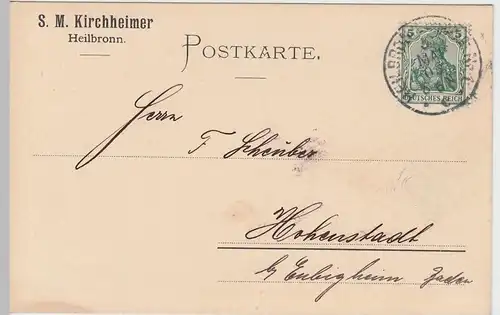 S. M. Kirchheimer
Heilbronn.
POSTKARTE.
5 5
DEUTSCHES REICH
HEILBRONN
Herrn
F Scheuber
Hohenstadt
b/ Eubigheim Baden